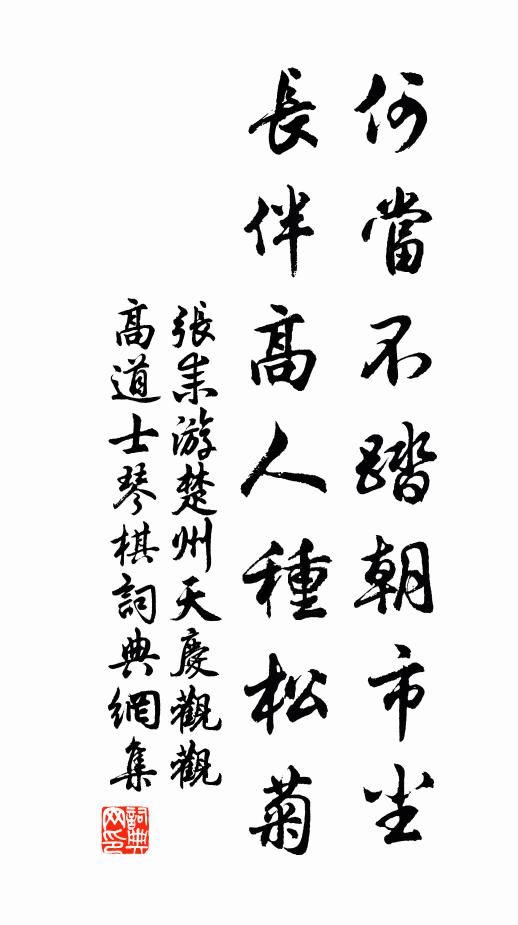 何當不踏朝市尘
長伴高人種松菊
張耒游楚州天慶觀觀
高道士琴棋詞典網集
詞典
网印